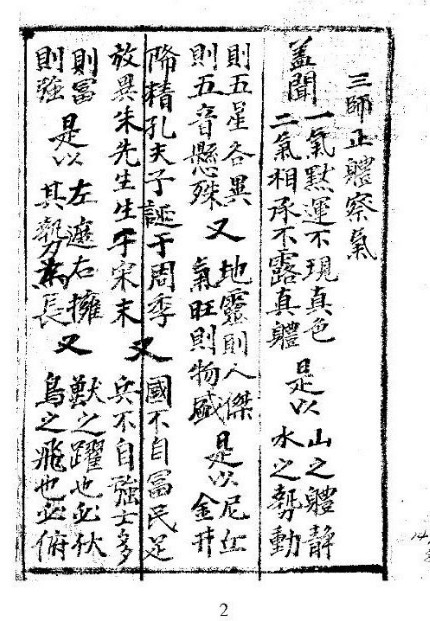 三師正體察氣
蓋聞一氣黙運不現真色二氣相承不露真體是以山之體靜水之勢動
則五星各異則五音懸殊又地靈則人傑氣旺則物盛是以尼丘金井
降精孔夫子誕于周季放異朱先生生于宋末又國不自富民足兵不自強士多
則富則強是以左遮右擁其勢為長又獸之躍也必伏鳥之飛也必俯
2